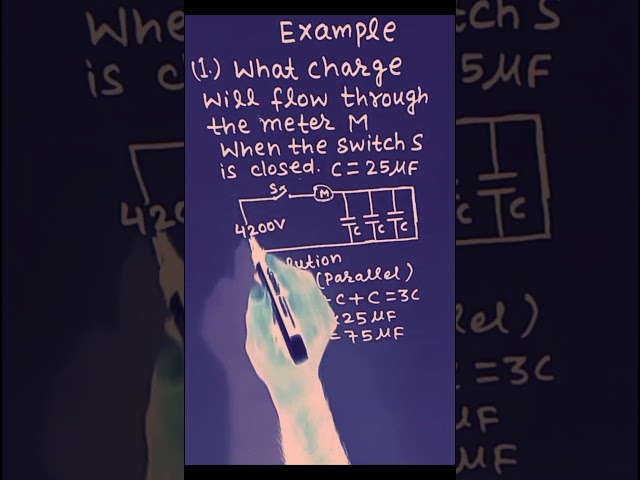 Example
(1.) What charge
will flow through
the meter M
When the switch S
is closed. C = 25 μF
S M
4200V C C C
(Parallel)
+ C + C = 3C
25 μF
= 75 μF